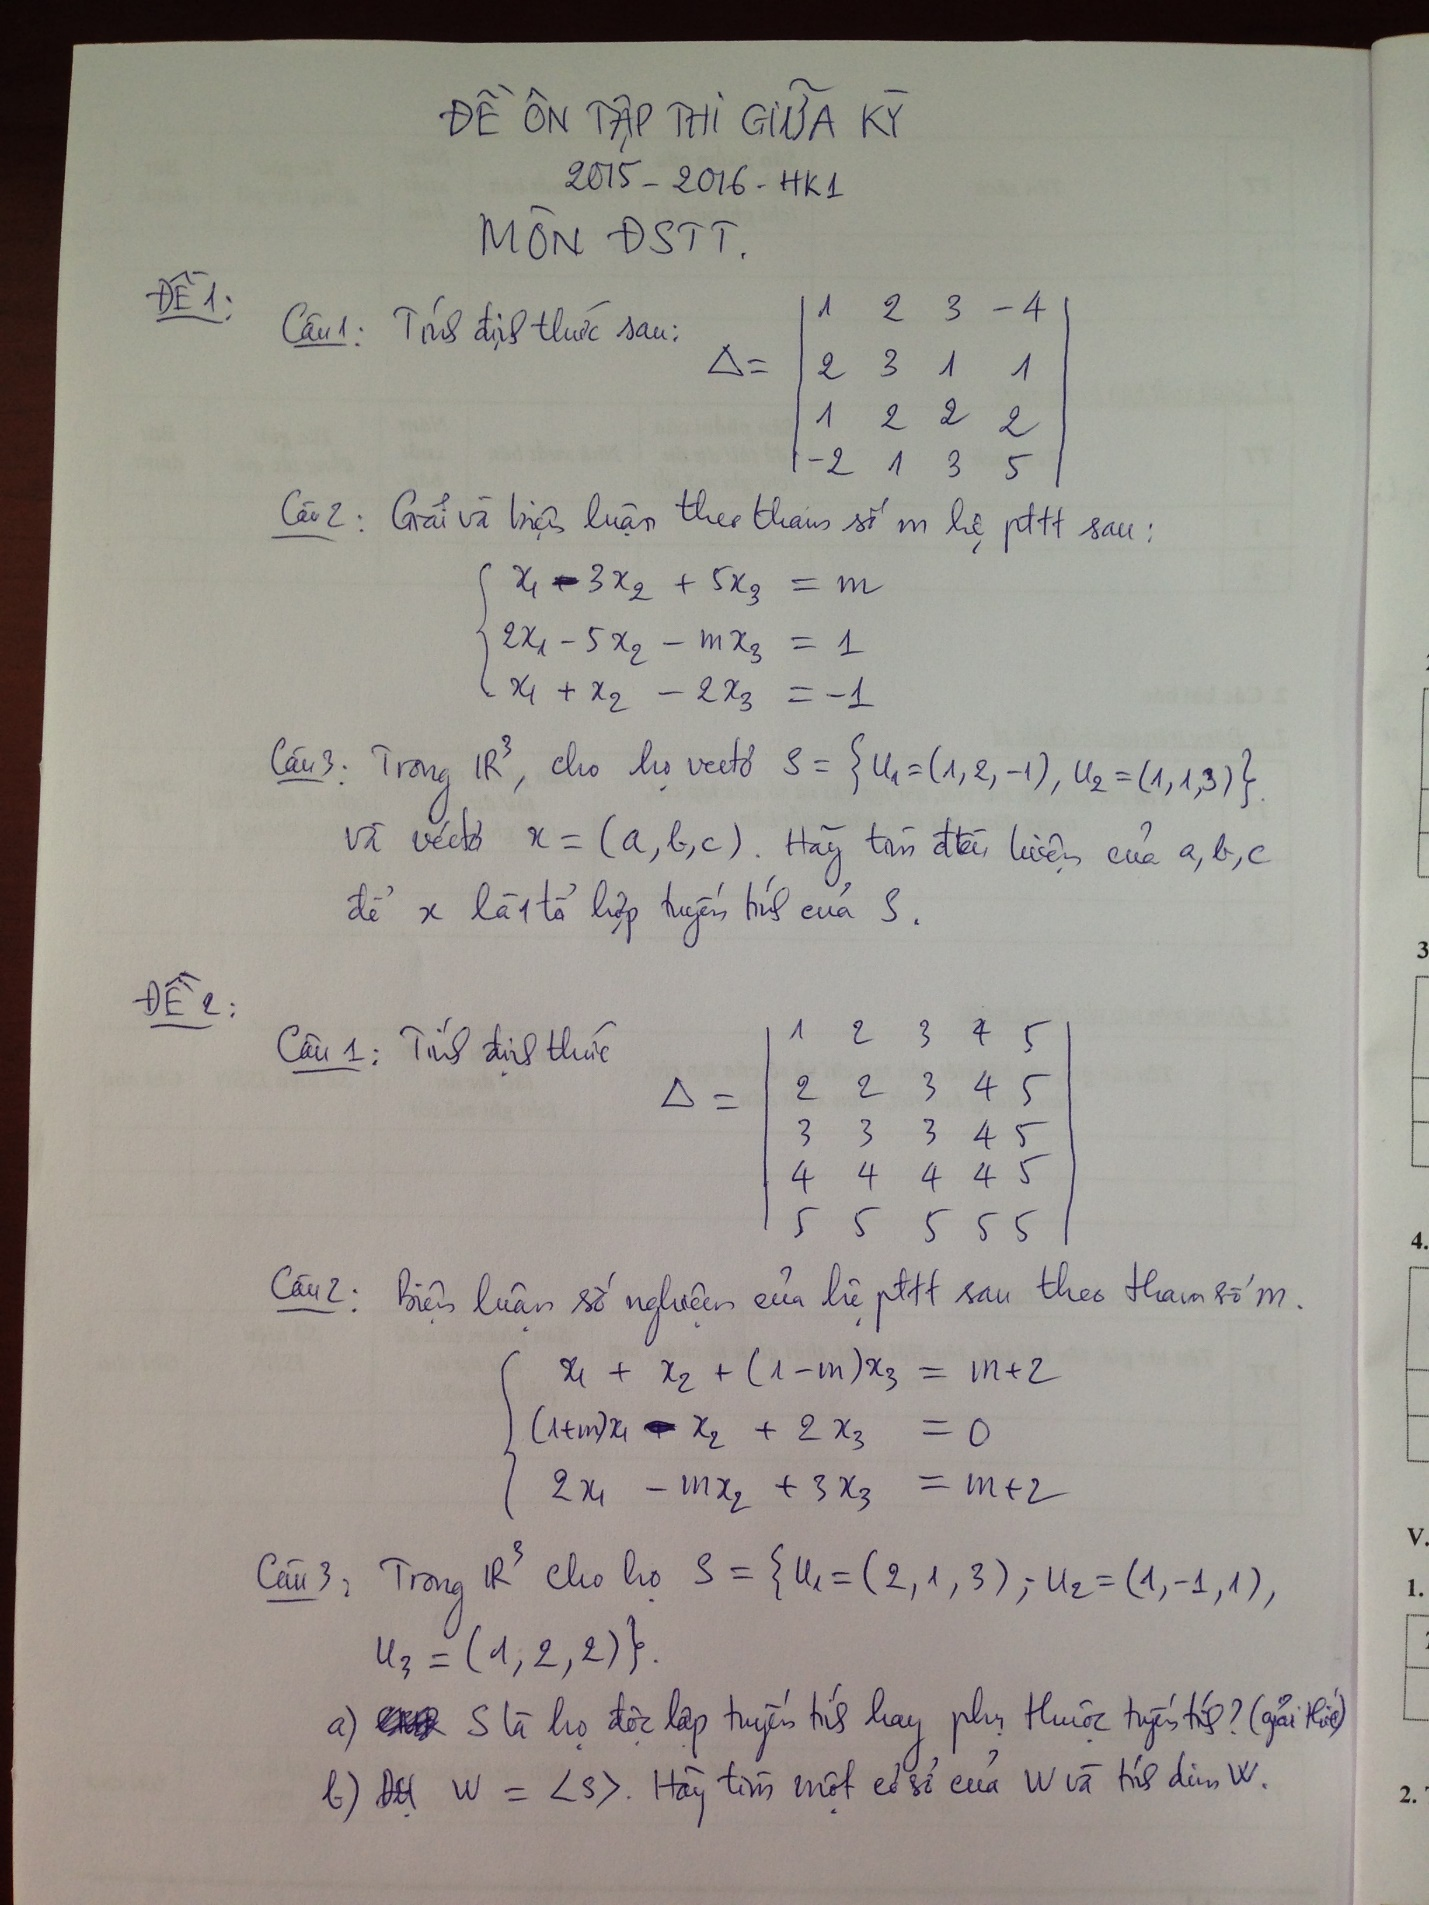 ĐỀ ÔN TẬP THI GIỮA KỲ
2015 - 2016 - HK1
MÔN ĐSTT.
ĐỀ 1:
Câu 1: Tính định thức sau: Δ =
| 1 2 3 -4 |
| 2 3 1 1 |
| 1 2 2 2 |
| -2 1 3 5 |
Câu 2: Giải và biện luận theo tham số m hệ pttt sau:
x₁ - 3x₂ + 5x₃ = m
2x₁ - 5x₂ - mx₃ = 1
x₁ + x₂ - 2x₃ = -1
Câu 3: Trong ℝ³, cho họ vectơ S = {u₁ = (1, 2, -1), u₂ = (1, 1, 3)}.
và véctơ x = (a, b, c). Hãy tìm điều kiện của a, b, c
để x là 1 tổ hợp tuyến tính của S.
ĐỀ 2:
Câu 1: Tính định thức Δ =
| 1 2 3 4 5 |
| 2 2 3 4 5 |
| 3 3 3 4 5 |
| 4 4 4 4 5 |
| 5 5 5 5 5 |
Câu 2: Biện luận số nghiệm của hệ pttt sau theo tham số m.
x₁ + x₂ + (1-m)x₃ = m+2
(1+m)x₁ - x₂ + 2x₃ = 0
2x₁ - mx₂ + 3x₃ = m+2
Câu 3: Trong ℝ³ cho họ S = {u₁ = (2, 1, 3); u₂ = (1, -1, 1),
u₃ = (1, 2, 2)}.
a) S là họ độc lập tuyến tính hay phụ thuộc tuyến tính? (giải thích)
b) W = <S>. Hãy tìm một cơ sở của W và tính dim W.
3
4.
V.
1.
2.